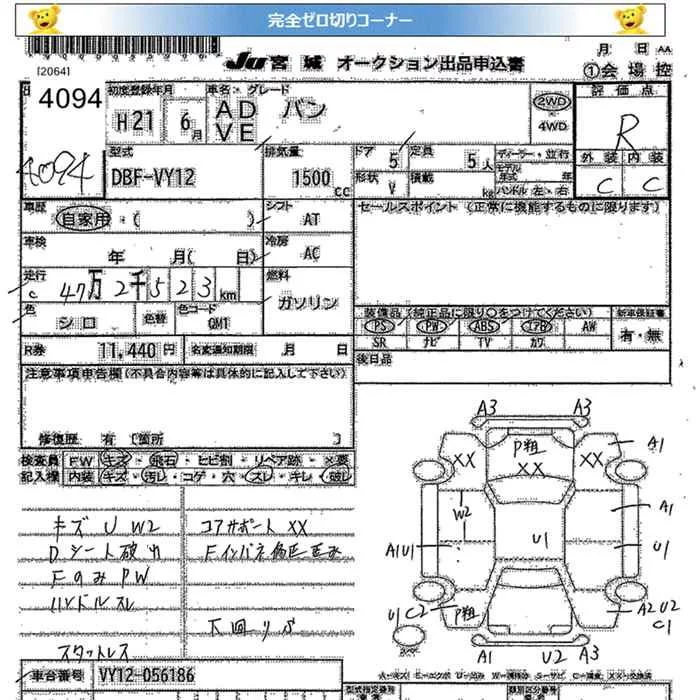 完全ゼロ切りコーナー
[2064]
JU 宮城 オークション出品申込書
月 日 AA
①会場控
4094
4094
初度登録年月 車名・グレード
H21 6月
AD バン
VE
2WD
4WD
評価点
R
外装 内装
C C
型式 排気量
DBF-VY12 1500cc
ドア 5 定員 5人
形状 V 積載 kg
ディーラー・並行
モデル年式 年
ハンドル 左・右
車歴 自家用・( )
シフト AT
セールスポイント (正常に機能するものに限ります)
車検 年 月( 日)
冷房 AC
走行 c 47万2千523km
燃料 ガソリン
色 シロ 色替 色コード QM1
装備品 (純正品に限り○をつけてください) 新車保証書
PS PW ABS エアB AW 有・無
SR ナビ TV カワ
R券 11,440円 名変通知期限 月 日
後日品
注意事項申告欄(不具合内容等は具体的に記入して下さい)
修復歴 有 [箇所 ]
検査員 FW キズ・飛石・ヒビ割・リペア跡・×要
記入欄 内装 キズ・汚レ・コゲ・穴・スレ・キレ・破レ
キズ U W2
Dシート破れ
Fのみ PW
ハンドルスレ
スタットレス
コアサポート XX
Fインパネ
下回りサビ
A3 A3
XX P粗 XX XX
A1
A1
W2
U1
A1U1
U1
U1 C2
P粗
A2 U2
C1
A1 U2 A3
車台番号 VY12-056186
A=キズ E=エクボ U=凹み W=補修跡 S=サビ C=腐食 XX=交換済
型式指定番号 類別区分番号